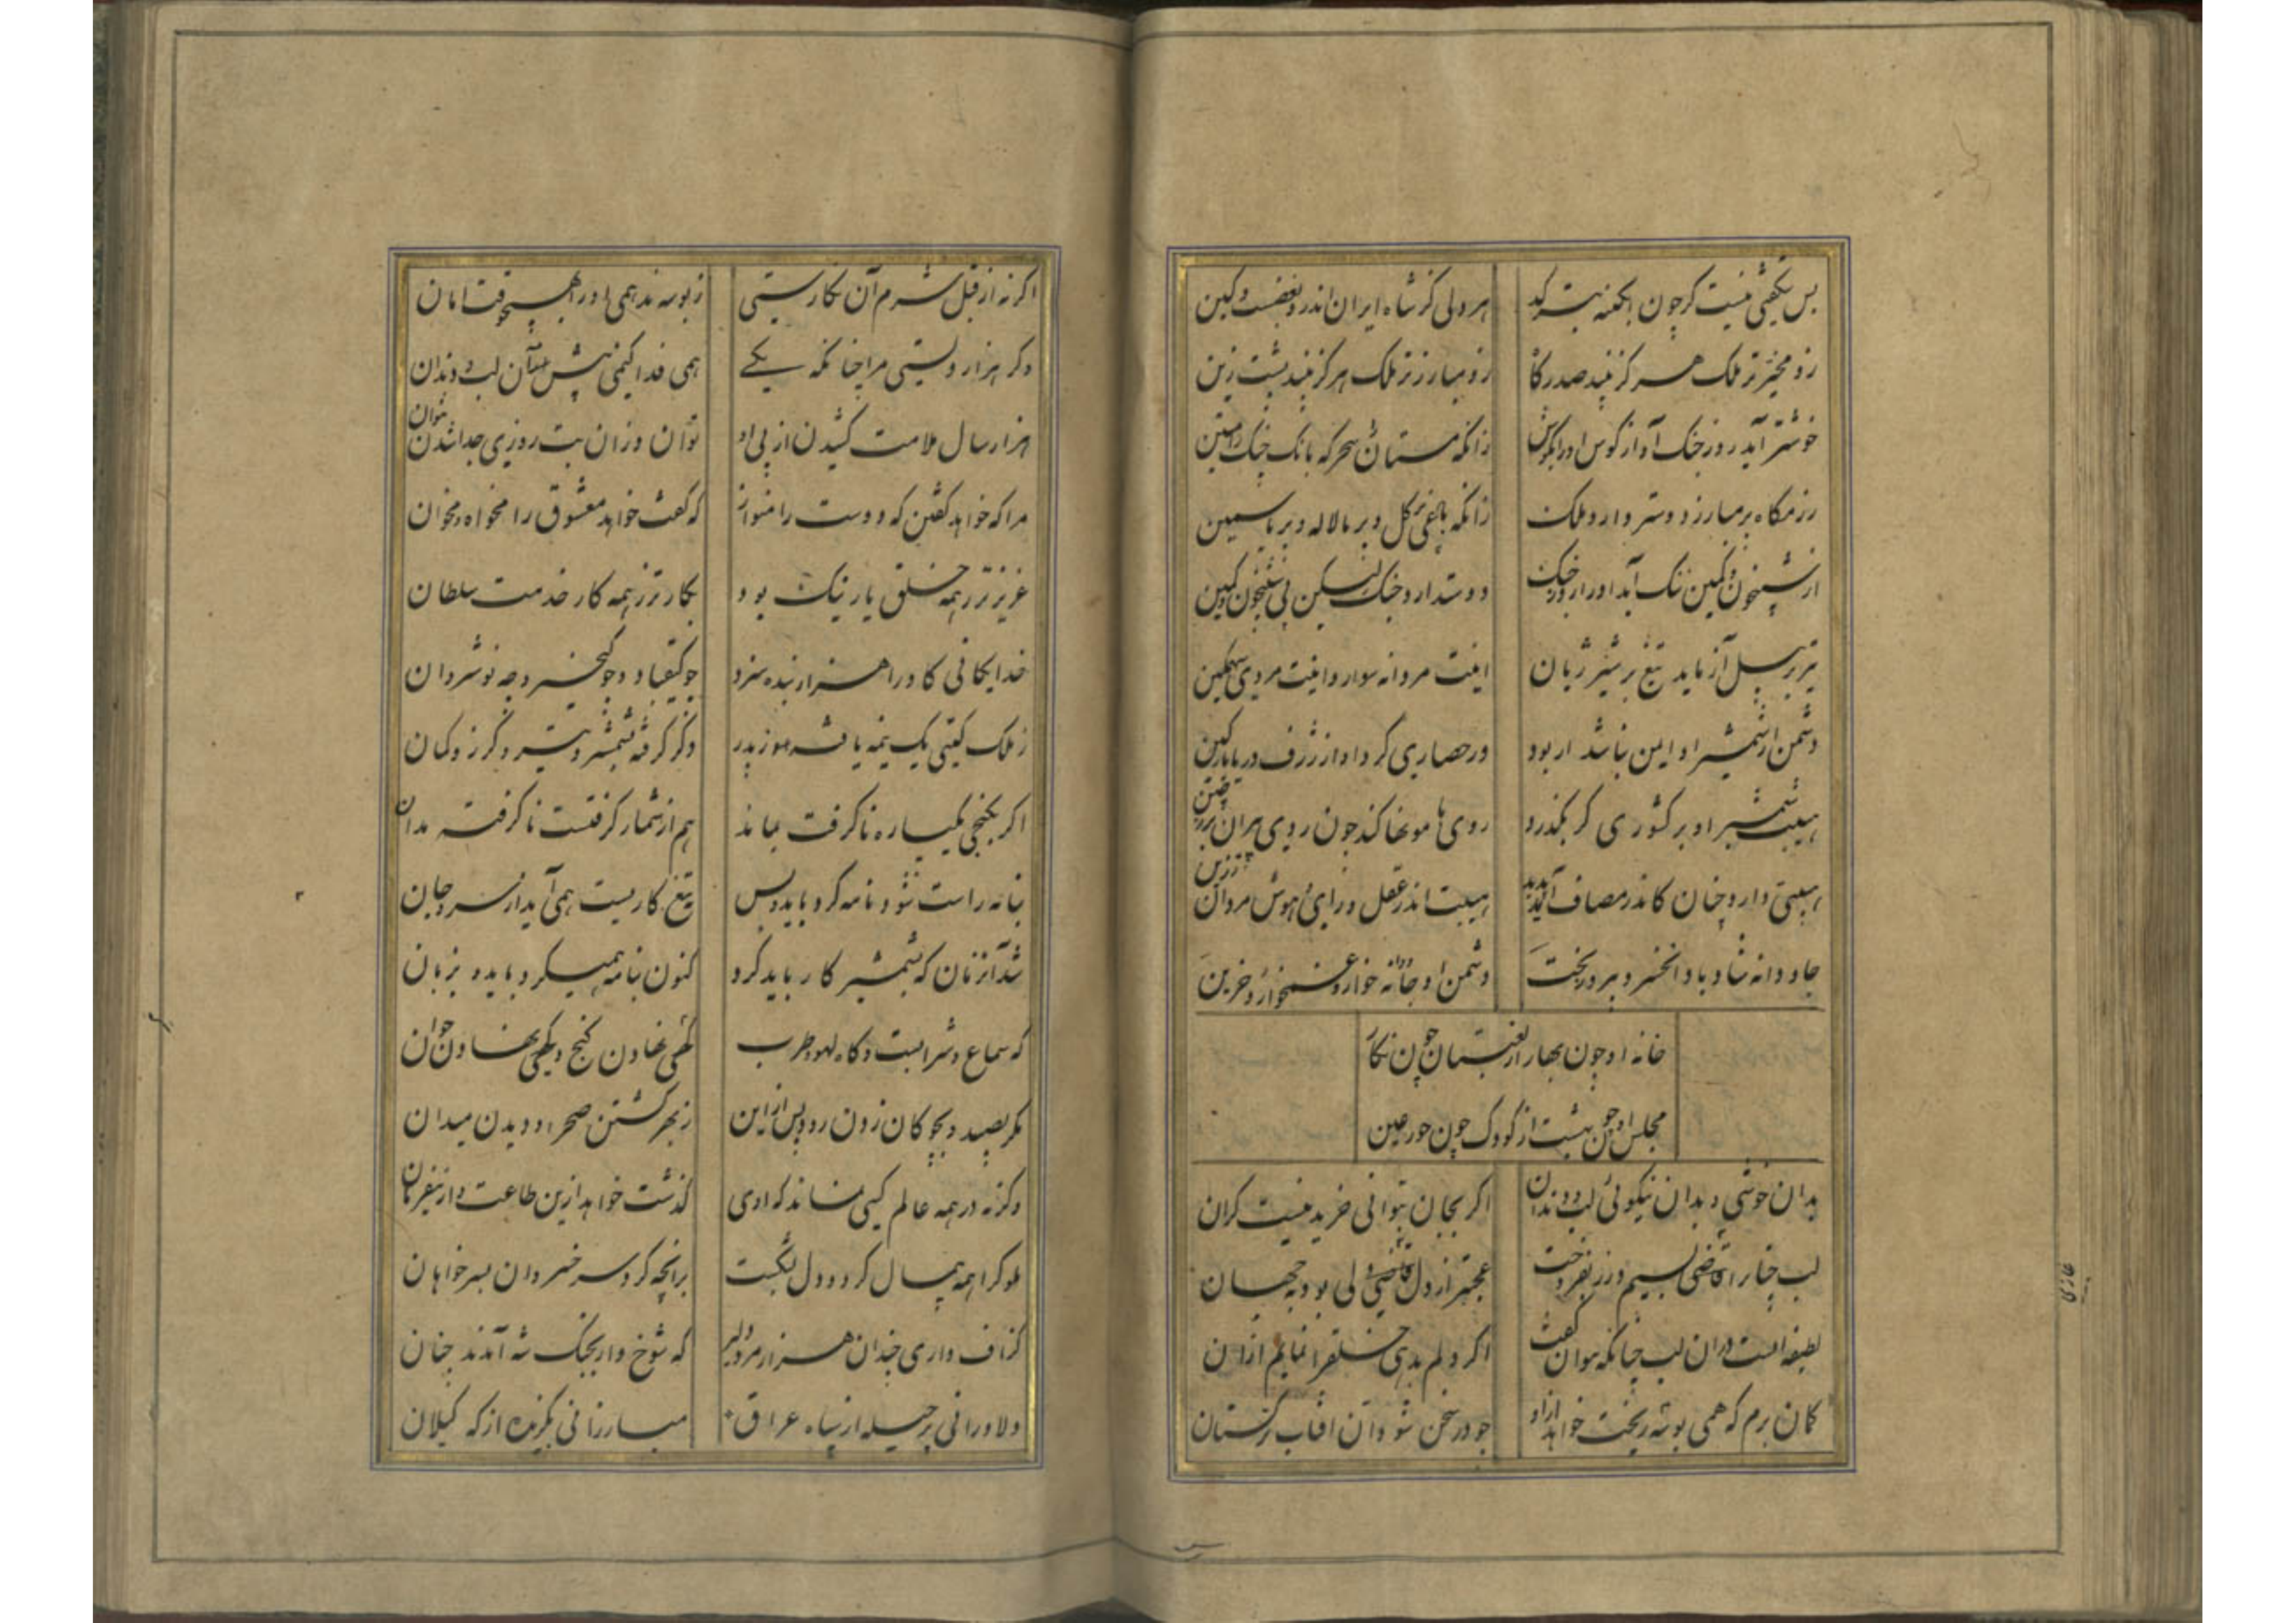 بس شگفتی نیست گر چون آبگینه بترکد
هر دلی کز شاه ایران اندرو بغضست و کین
زو مخیرتر ملک هرگز نبیند صدر گاه
زو مبارزتر ملک هرگز نبیند پشت زین
خوشتر آید روز جنگ آواز کوس او را بگوش
زانکه مستان سحرگه بانک چنک رامتین
رزمگاه پر مبارز دوستر دارد ملک
زانکه باغی پر گل و پر لاله و پر یاسمین
از شبیخون و کمین ننک آید او را روز جنک
دوستدارد جنک لیکن بی شبیخون و کمین
تیر بر پیل آزماید تیغ بر شیر ژیان
اینت مردانه سوار و اینت مردی سهمگین
دشمن از شمشیر او ایمن نباشد ار بود
در حصاری گرد او از ژرف دریا بارکین
هیبت شمشیر او بر کشوری گر بگذرد
روی ها مونها کند چون روی پر چین
هیبتی دارد چنان کاندر مصاف آید پدید
هیبت اندر عقل و رای و هوش مردان رزین
جاودانه شاد باد آنخسرو پیروزبخت
دشمن او جاودانه خوار و غمخوار و حزین
خانه او چون بهار از لعبتان چون نگار
مجلس او چون بهشت از کودک چون حور عین
بدان خوشی و بدان نیکوئی لب و دندان
اگر بجان بتوانی خرید نیست گران
لب چنار اقاضی بسیم و زر نفروخت
عجبتر از دل قاضی دلی بود بجهان
لطیفه ایست در آن لب چنانکه نتوان گفت
اگر دلم بدهی خلقرا نمایم از آن
گمان برم که همی بوسه ریخت خواهد ازو
چو در سخن شود آن افتاب ترکستان
اگر نه از قبل شرم آن نگارستی
ز بوسه ندهمی او را بهیچوقت امان
وگر هزار دلستی مرا چنانکه یکی
همی فدا کنمی پیش آن لب و دندان
هزار سال ملامت کشیدن از پی او
توان وزان بت روزی جدا شدن نتوان
مرا که خواهد گفتن که دوست را منواز
که گفت خواهد معشوق را مخواه و مخوان
عزیزتر ز همه خلق یار نیک بود
بکارتر ز همه کار خدمت سلطان
خدایگانی کاو را هزار بنده سزد
چو کیقباد و چو کیخسرو چو نوشروان
ز ملک گیتی یک نیمه یافته موز پدر
دگر گرفته بشمشیر و تیر و گرز و کمان
اگر بکنجی یکپاره ناگرفت بماند
هم از شمار گرفتست ناگرفته مدان
بنامه راست شود نامه کرد باید و بس
تیغ کاریست همی آید از سر و جان
شد آنزمان که بشمشیر کار باید کرد
کنون بنامه همیکرد باید و بزبان
که سماع و شرابست و گاه لهو و طرب
گهی نهادن گنج و گهی نهادن خوان
مگر بصید و بچوگان زدن رود پس ازین
ز بهر گشتن صحرا و دیدن میدان
وگرنه در همه عالم کسی نماند که او
گذشت خواهد ازین طاعت و ازینفرمان
ملوک را همه بمال کرد و دل بشکست
بدانچه کرد سر خسروان بسر خواهان
گزاف داری چندان هزار مرد دلیر
که شوخ وار بجنگ شه آمدند چنان
دلاورانی پر حیله از سپاه عراق
مبارزانی بگزیده از که گیلان
غازی